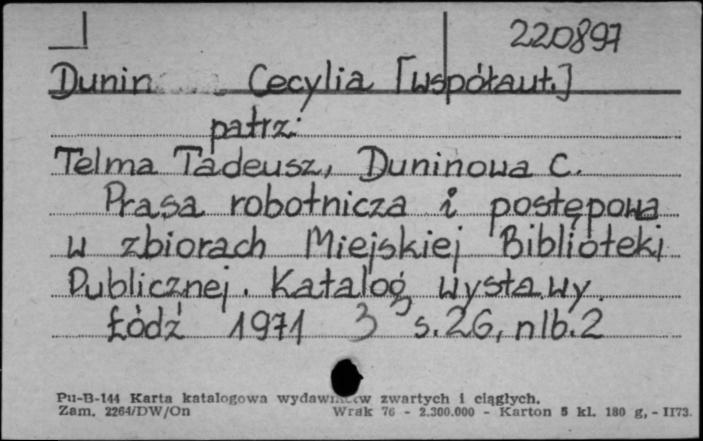 220897
Dunin Cecylia [współaut.]
patrz:
Telma Tadeusz, Duninowa C.
Prasa robotnicza i postępowa
w zbiorach Miejskiej Biblioteki
Publicznej. Katalog wystawy.
Łódź 1971 s. 26, nlb. 2
Pu-B-144 Karta katalogowa zwartych i ciągłych.
Zam. 2264/DW/On Wrak 76 - 2.300.000 - Karton 5 kl. 180 g, - II73.